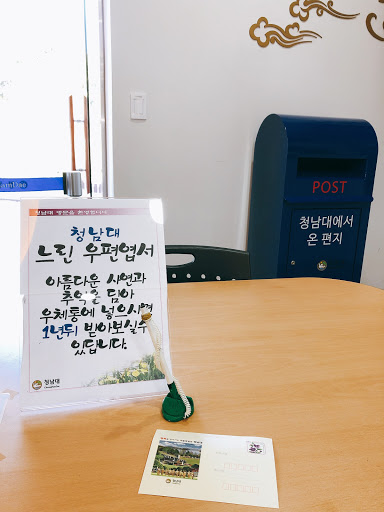 amDae
청남대 방문을 환영합니다
청남대
느린 우편엽서
아름다운 사연과
추억을 담아
우체통에 넣으시면
1년뒤 받아보실수
있답니다.
청남대
POST
청남대에서
온 편지